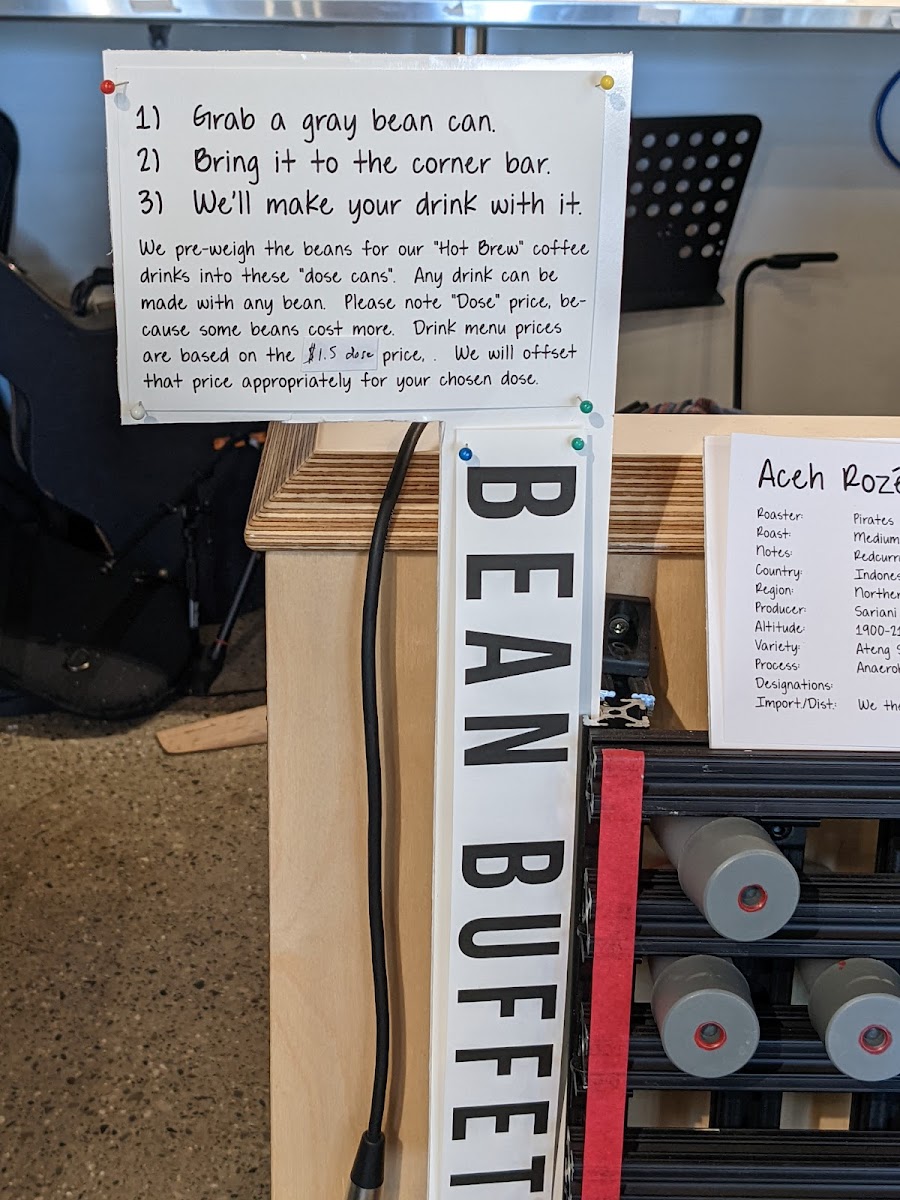 1) Grab a gray bean can.
2) Bring it to the corner bar.
3) We'll make your drink with it.
We pre-weigh the beans for our "Hot Brew" coffee
drinks into these "dose cans". Any drink can be
made with any bean. Please note "Dose" price, be-
cause some beans cost more. Drink menu prices
are based on the $1.5 dose price, . We will offset
that price appropriately for your chosen dose.
BEAN BUFFET
Aceh
Roaster: Pirates
Roast: Medium
Notes:
Country:
Region:
Producer: Sariani
Altitude:
Variety: Ateng
Process:
Designations:
Import./Dist.: We